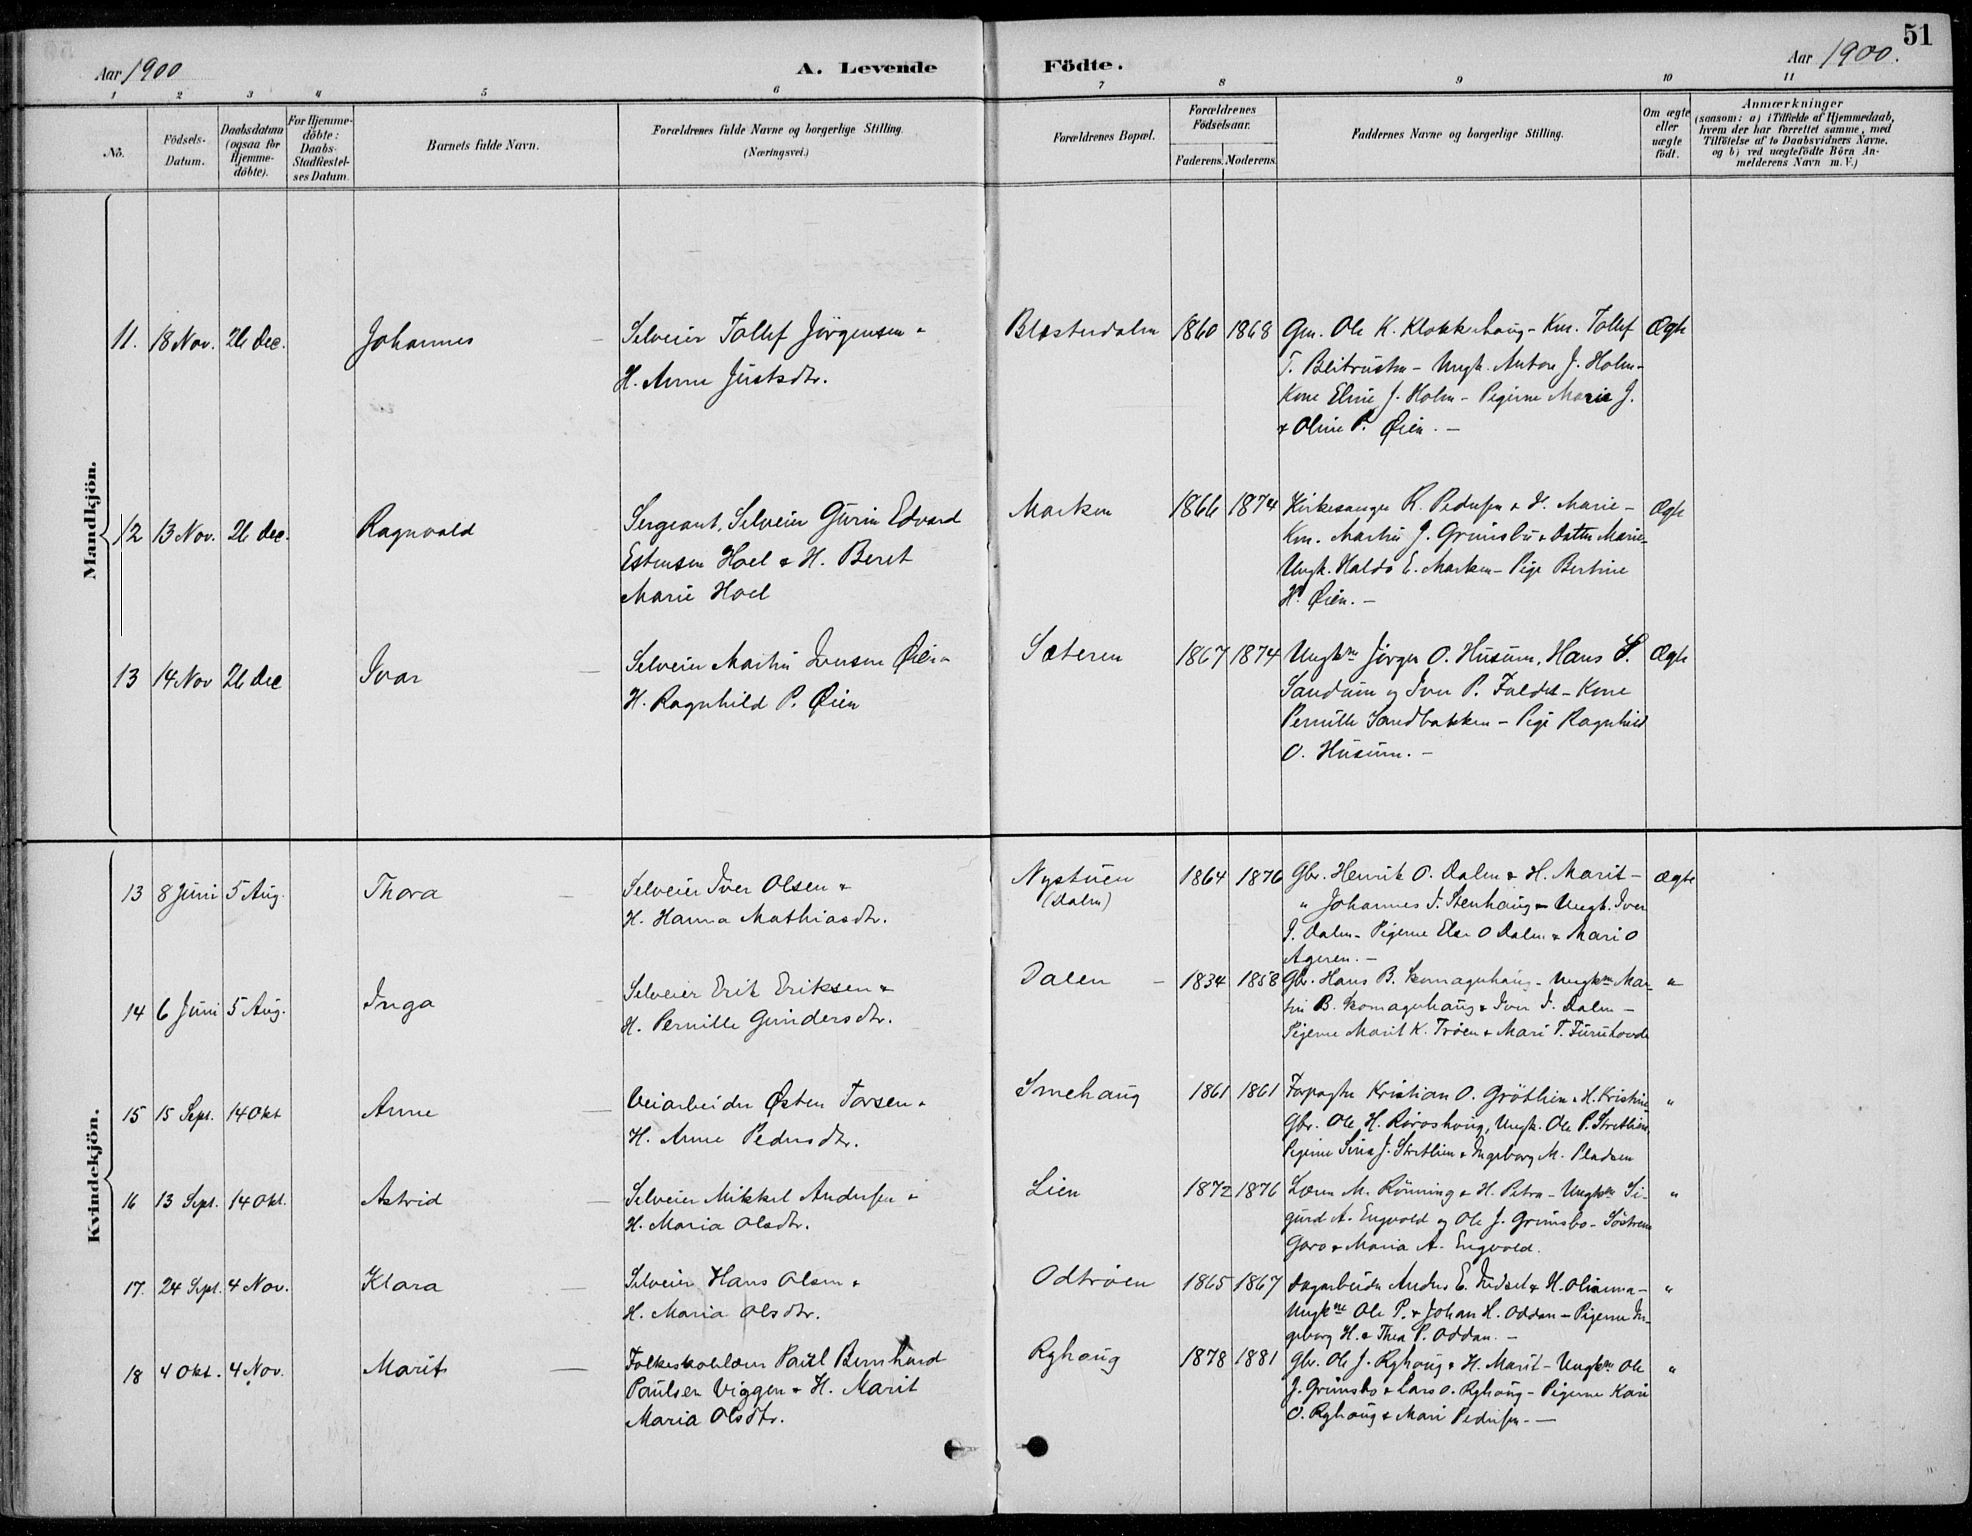 51
Aar 1900
A. Levende Födte.
Aar 1900.
1 2 3 4 5 6 7 8 9 10 11
No.
Födsels-Datum.
Daabsdatum (ogsaa for Hjemme-döbte).
For Hjemme-döbte: Daabs-Stadfæstel-ses Datum.
Barnets fulde Navn.
Forældrenes fulde Navne og borgerlige Stilling.
(Næringsvei.)
Forældrenes Bopæl.
Forældrenes Födselsaar.
Faderens. Moderens.
Faddernes Navne og borgerlige Stilling.
Om ægte eller uægte födt.
Anmærkninger
(saasom: a) i Tilfælde af Hjemmedaab,
hvem der har forrettet samme, med
Tilföielse af to Daabsvidners Navne.
og b) ved uægtefödte Börn An-
melderens Navn m. V.)
Mandkjön.
11. 18 Nov. 26 Dec. Johannes
Selveier Tollef Jørgensen &
H. Anne Justsdtr.
Blæsterdalen 1860 1868
Gm. Ole K. Klokkerhaug - Km. Tollef
T. Beitrusten - Ungk. Anton J. Holm-
Kone Eline J. Holm - Pigerne Marie J.
& Oline P. Øien. -
Ægte
12 13 Nov. 26 Dec. Ragnvald
Sergeant, Selveier Gurin Edvard
Estensen Hoel & H. Beret
Marie Hoel
Marken 1866 1874
Kirkesanger R. Pedersen & H. Marie -
Km. Martin J. Grimsbu & Datter Marie-
Ungk. Haldo E. Marken - Pige Bertine
H. Øien. -
Ægte
13 14 Nov 26 Dec Ivar
Selveier Martin Iversen Øien &
H. Ragnhild P. Øien
Sæteren 1867 1874
Ungkne Jørgen O. Husum, Hans S.
Sandum og Iver P. Faldet - Kone
Pernille Sandbakken - Pige Ragnhild
O. Husum. -
Ægte
Kvindekjön.
13 8 Juni 5 Aug. Thora
Selveier Iver Olsen &
H. Hanna Mathiasdtr.
Nystuen
(Dalen)
1864 1876
Gbr. Henrik O. Dalen & H. Marit -
" Johannes I. Stenhaug - Ungk. Iver
I. Dalen - Pigerne Else O Dalen & Mari O
Ageren. -
Ægte
14 6 Juni 5 Aug. Inga
Selveier Erik Eriksen &
H. Pernille Gundersdtr.
Dalen - 1834 1858
Gbr. Hans B. Komagerhaug - Ungkne Mar-
tin B. Komagerhaug & Iver I. Dalen -
Pigerne Marit K. Trøen & Mari T. Furuhovde
"
15 15 Sept. 14 Okt Anne
Veiarbeider Østen Torsen &
H. Anne Pedersdtr.
Smehaug 1861 1861
Forpagter Kristian O. Grötlien & H. Kristine
Gbr. Ole H. Röroshoug, Ungk. Ole P. Stretlien,
Pigerne Sina J. Stretlien & Ingeborg M. Pladsen
"
16 13 Sept. 14 Okt. Astrid
Selveier Mikkel Andersen &
H. Maria Olsdtr.
Lien 1872 1876
Lærer M. Rönning & H. Petra - Ungkne Si-
gurd A. Engvold og Ole J. Grimsbo - Söstrene
Goro & Maria A. Engvold.
"
17. 24 Sept. 4 Nov. Klara
Selveier Hans Olsen &
H. Maria Olsdtr.
Odtrøen 1865 1867
Dagarbeider Anders E. Indset & H. Olianna -
Ungkne Ole P. & Johan H. Oddan - Pigerne In-
geborg H. & Thea P. Oddan. -
"
18 4 Okt. 4 Nov. Marit
Folkeskolelærer Paul Bernhard
Paulsen Viggen & H. Marit
Maria Olsdtr.
Ryhaug 1878 1881
Gbr. Ole J. Ryhaug & H. Marit - Ungkne Ole
J. Grimsbo & Lars O. Ryhaug - Pigerne Kari
O. Ryhaug & Mari Pedersen. -
"